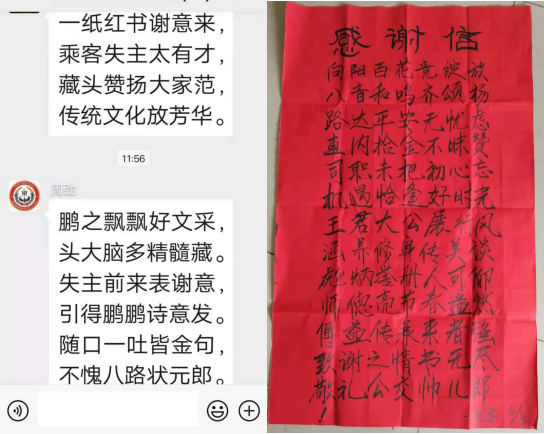 一纸红书谢意来，
乘客失主太有才，
藏头赞扬大家范，
传统文化放芳华。
11:56
周劲
鹏之飘飘好文采，
头大脑多精髓藏。
失主前来表谢意，
引得鹏鹏诗意发。
随口一吐皆金句，
不愧八路状元郎。
感谢信
向阳百花竞绽放
八音和鸣齐颂扬
路达平安无忧虑
车内拾金不昧赞
司职未把初心忘
机遇恰逢好时光
王君大公展行风
涵养修身传美谈
彪炳
师德亮节春益然
傅益传来来者
致谢之情书无尽
敬礼公交帅儿郎
！